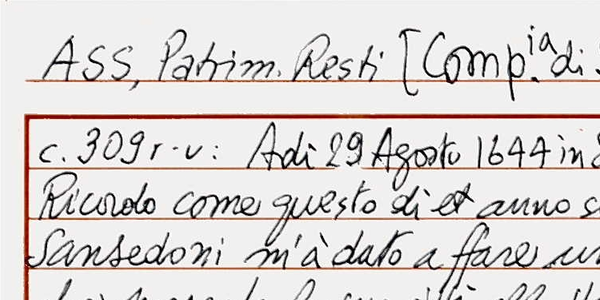 ASS, Patrim. Resti [Comp.ia di
c. 309 r-v: Adi 29 Agosto 1644 in
Ricordo come questo di et anno
Sansedoni m'à dato a fare un